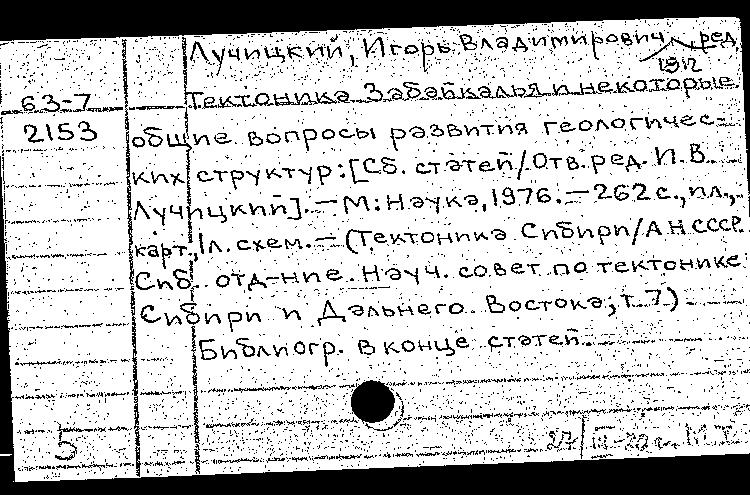 Лучицкий, Игорь Владимирович, ред.
1912
63-7
Тектоника Забайкалья и некоторые
2153
общие вопросы развития геологичес-
ких структур: [Сб. статей/Отв. ред. И.В.
Лучицкий]. — М: Наука, 1976. — 262 с., ил.,
карт., 1 л. схем. — (Тектоника Сибири/АН СССР.
Сиб. отд-ние. Науч. совет по тектонике
Сибири и Дальнего Востока; т. 7)
Библиогр. в конце статей.
5
27 III-